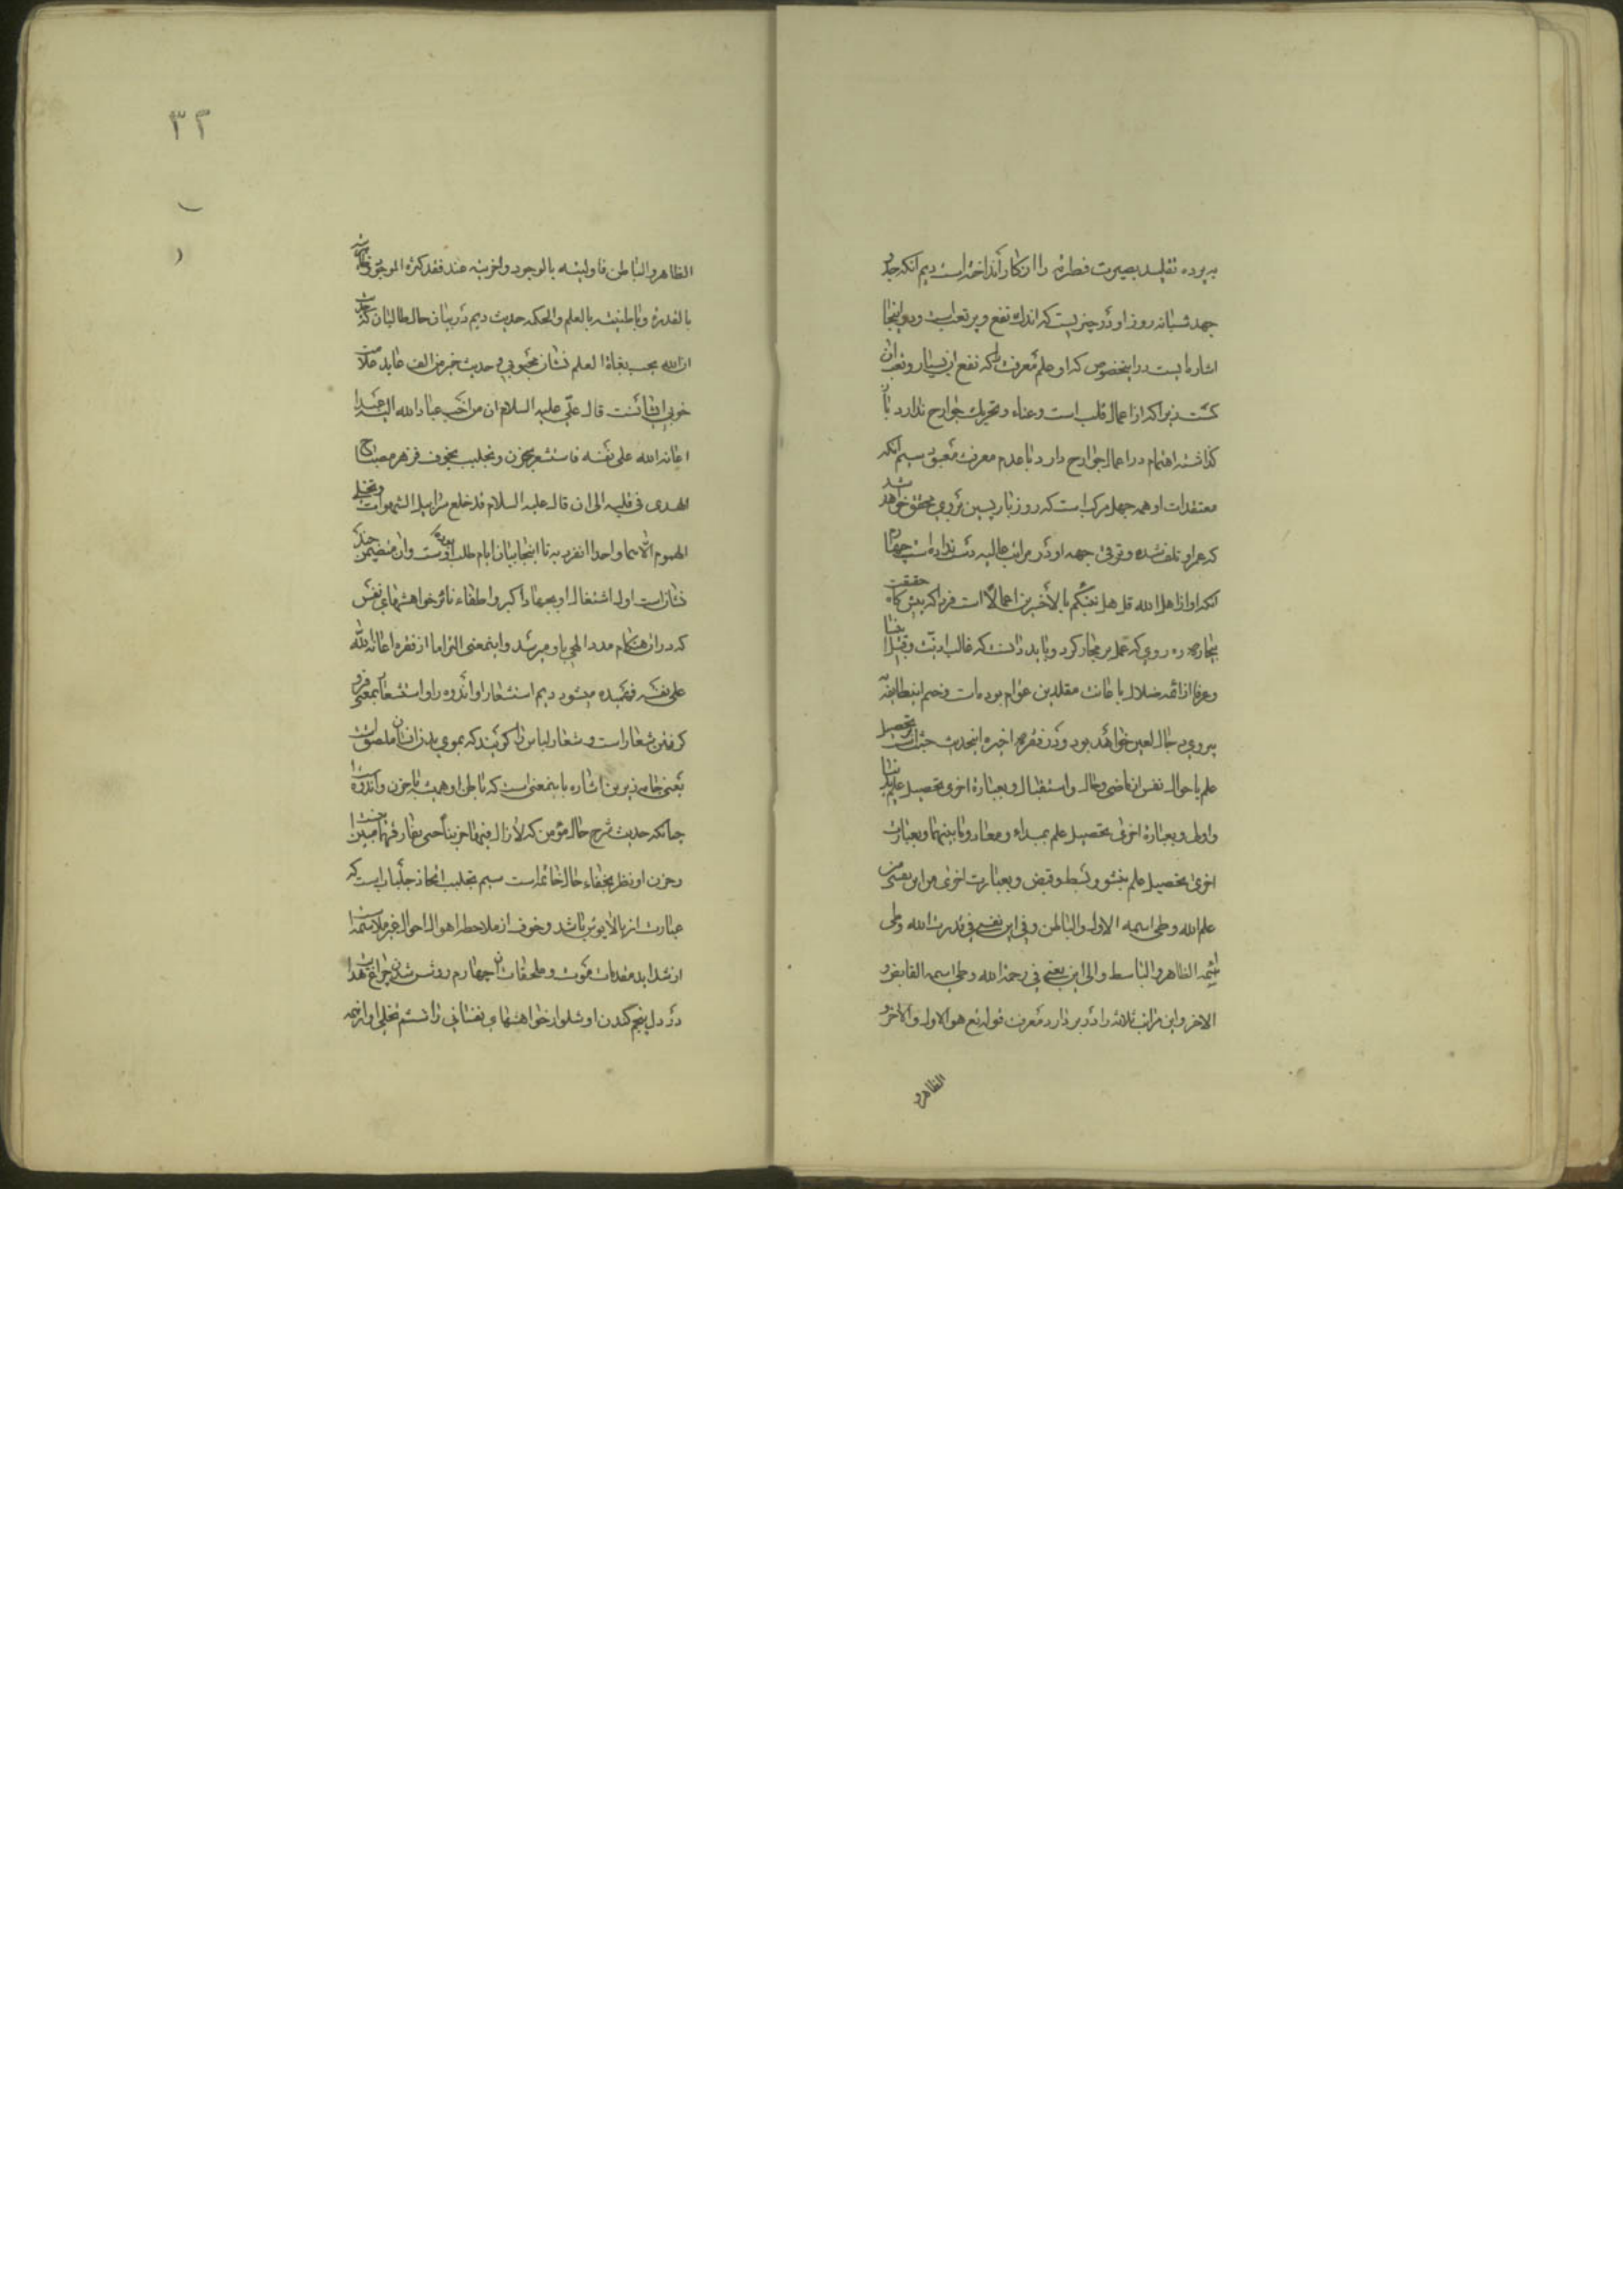 به پرده تقلید بصیرت فطرة را از کار انداخته است دیم آنکه جد و
جهد شبانه روز او در چیزیست که اندك نفع و پر تعب است و در اینجا
اشاره‌ایست در اینخصوص که او علم معرفت را که نفع او بسیار و تعب آن
کمست زیرا که از اعمال قلب است و عناء و تحریك جوارح ندارد باز
گذاشته اهتمام در اعمال جوارح دارد با عدم معرفت معبود سیم آنکه
معتقدات او همه جهل مرکب است که روز بازپسین بروی محقق خواهد شد
که عمر او تلف شده و ترقی جهه او در مراتب عالیه دست نداده است چهارم
آنکه او از اهل الله قل هل ننبئکم بالأخسرین اعمالا است فردا که پیشگاه حقیقت
رهروی که عمل بر مجاز کرد و باید دانست که غالب
و عرفا از ائمه ضلال با عانت مقلدین عوام بوده‌ات و خیم اینطایفه
پیروی دجال لعین خواهد بود و در فقره اخیره اینحدیث حث است بر تحصیل
علم باحوال نفس از ماضی و حال و استقبال و بعبارة اخری تحصیل علم
و اولی و بعبارة اخری تحصیل علم بمبداء و معاد و ما بینهما و بعبارت
اخری تحصیل علم بنشو و بسط و قبض و بعبارت اخری من این یعنی من
علم الله و طی اسمه الاول و الباطن و فی این یعنی فی قدرت الله و طی
اسمه الظاهر و الباسط و الی این یعنی فی رحمة الله و طی اسمه القابض و
الاخر و این مراتب ثلاثه را در بر دارد معرفت قوله تع هو الاول و الآخر و
الظاهر و
٣٢
الظاهر و الباطن فاولیته بالوجود و اخریته عند فقد کثرة الموجود و ظاهریته
بالقدرة و باطنیته بالعلم و الحکمه حدیث دیم در بیان حال طالبان که حدیث
ان الله یحب بغاة العلم نشان محبوبی و حدیث خیر من الف عابد علامت
خوبی ایشانست قال علی علیه السلام ان من احب عباد الله الیه عبدا
اعانه الله علی نفسه فاستشعر الحزن و تجلبب الخوف فزهر مصباح
الهدی فی قلبه الی ان قال علیه السلام قد خلع سرابیل الشهوات و تخلی من
الهموم الا هما واحدا انفرد به تا اینجا بیان ایام طلب اوست و آن متضمن چند
نشان است اول اشتغال او بجهاد اکبر و اطفاء نائر خواهشهای نفس
که در آن هنگام مدد الهی باو میرسد و اینمعنی التزاما از فقره اعانه الله
علی نفسه فهمیده میشود دیم استشعار او اندوه را و استشعار بمعنی فرو
گرفتن شعار است و شعار لباس را گویند که بموی بدن انسان ملصوق است
یعنی جامه زیرین اشاره باینمعنی است که باطن او همیشه با حزن و اندوه است
چنانکه حدیث شرح حال مؤمن که لا زال فیها حزینا حتی یفارقها مبین است
و حزن او نظر بخفاء حال خاتمه است سیم تجلبب اتخاذ جلباب است که
عبارت از بالاپوش باشد و خوف از ملاحظه اهوال احوال غیر ملائمه است
از شداید مقدمات موت و ملحقات آن چهارم روشن شدن چراغ هدایت
در دل پنجم کندن او شلوار خواهشهای نفسانی را ششم تخلی او از همه